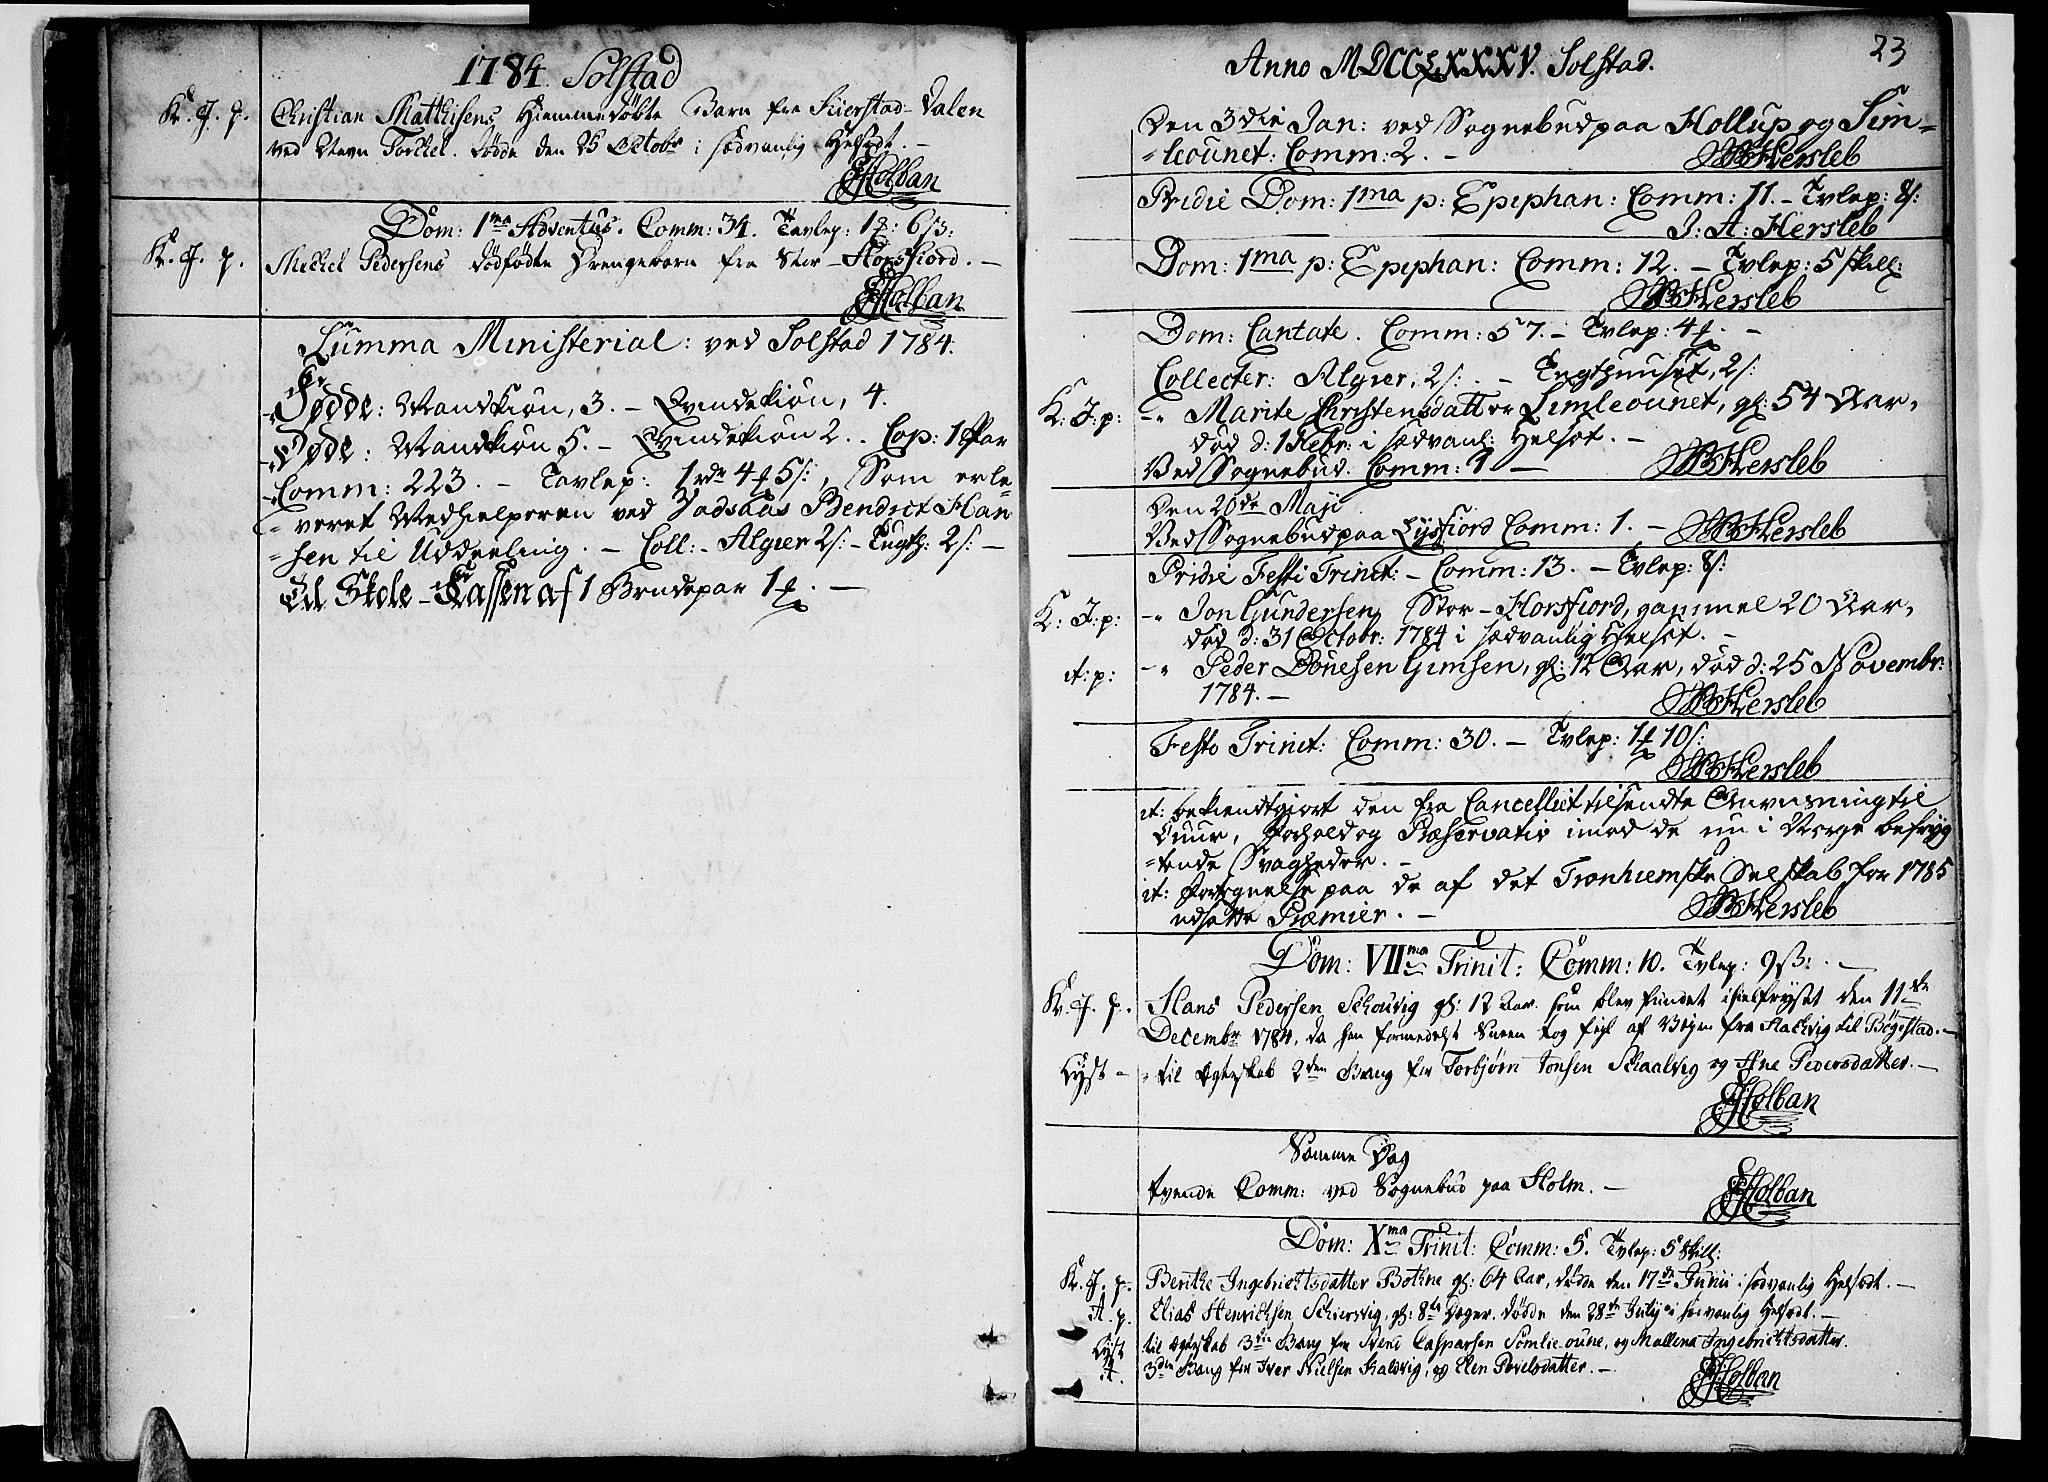 1784. Solstad
K. J. p. Christian Matthisens Hiemmedøbte Barn fra Siierstad-Dalen
ved Navn Torckel. døde den 25 Octobr i sædvanlig Helsodt. –
Holban
Dom: 1ma Adventus. Comm: 34. Tavlep: 1 : 6 ß:
K. J. p. Mickel Pedersens dødfødte Drengebarn fra Stor-Horsfiord. –
Holban
Summa Ministerial: ved Solstad 1784:
Fødde: Mandkiøn, 3. – Qvindekiøn, 4.
Døde: Mandkiøn 5. – Qvindekiøn 2. . Cop: 1 Par
Comm: 223. – Tavlep: 1 rdr 4 5 s:, Som erle-
veret Medhielperen ved Vadsaas Bendict Han
sen til Uddeeling. – Coll: – Algier 2 s: – Tugth: 2 s: –
Til Skole-Cassen af 1 Brudepar 1 . –
23
Anno MDCCLXXXV. Solstad.
Den 3die Jan: ved Sognebud paa Hollup og Sim-
leounet: Comm: 2. – Hersleb
Pridie Dom: 1ma p: Epiphan: Comm: 11. – Tvlep: 8 s:
J: A: Hersleb
Dom: 1ma p: Epiphan: Comm: 12. – Tvlep: 5 skill:
Hersleb
Dom: Cantate. Comm: 57. – Tvlep: 4 . –
Collecter: Algier, 2 s: . – Tugthuuset, 2 s:
K: J: p: – Marite Christensdatter Simleounet, gl: 54 Aar,
død d: 1 Febr: i sædvanl: Helsot. –
Ved Sognebud. Comm: 1 – Hersleb
Den 20de Maji
Ved Sognebud paa Lysfiord Comm: 1. – Hersleb
Pridie Festi Trinit: – Comm: 13. – Tvlep: 8 s:
K: J: p: – Jon Gundersen Stor-Horsfiord, gammel 20 Aar,
død d: 31 Octobr: 1784 i sædvanlig Helsot. –
it: p: – Peder Dónesen Gimsen, gl: 12 Aar, død d: 25 Novembr:
1784. – Hersleb
Festo Trinit: Comm: 30. – Tvlep: 1 10 s:
Hersleb
it: bekiendtgjort den fra Cancelliet tilsendte Anviisning til
Cuur, Forhold og Præservativ imod de nu i Norge befryg
tende Svagheder. –
it: Fortegnelse paa de af det Tronhiemske Selskab for 1785
udsatte Præmier. – Hersleb
Dom: VIIma Trinit: Comm: 10. Tvlep: 9 ß: . –
K. J. p. Hans Pedersen Schouvig gl: 12 Aar. som blev fundet ihielfryset den 11te
Decembr 1784, da han formedelst Sneen tog fejl af Vejen fra Hackvig til Bøgestad. –
Lyst – til Ægteskab 2den Gang for Torbjørn Jonsen Skaalvig og Ane Pedersdatter. –
Holban
Samme Dag
tvende Comm: ved Sognebud paa Holm. – Holban
Dom: Xma Trinit: Comm: 5. Tvlep: 5 Skill:
K. J. p. Berithe Ingebrichtsdatter Bothne gl: 64 Aar, døde den 17de Junii i sædvanlig Helsodt. –
It. p. Elias Henrichsen Schiersvig, gl: 8te Dager. døde den 28de Julij i sædvanlig Helsodt. –
Lyst til Ægteskab 3die Gang for Svend Casparsen Simleoune, og Mallena Ingebrichtsdatter.
It. 3die Gang for Iver Nielsen Kalsvig, og Elen Povelsdatter. –
Holban